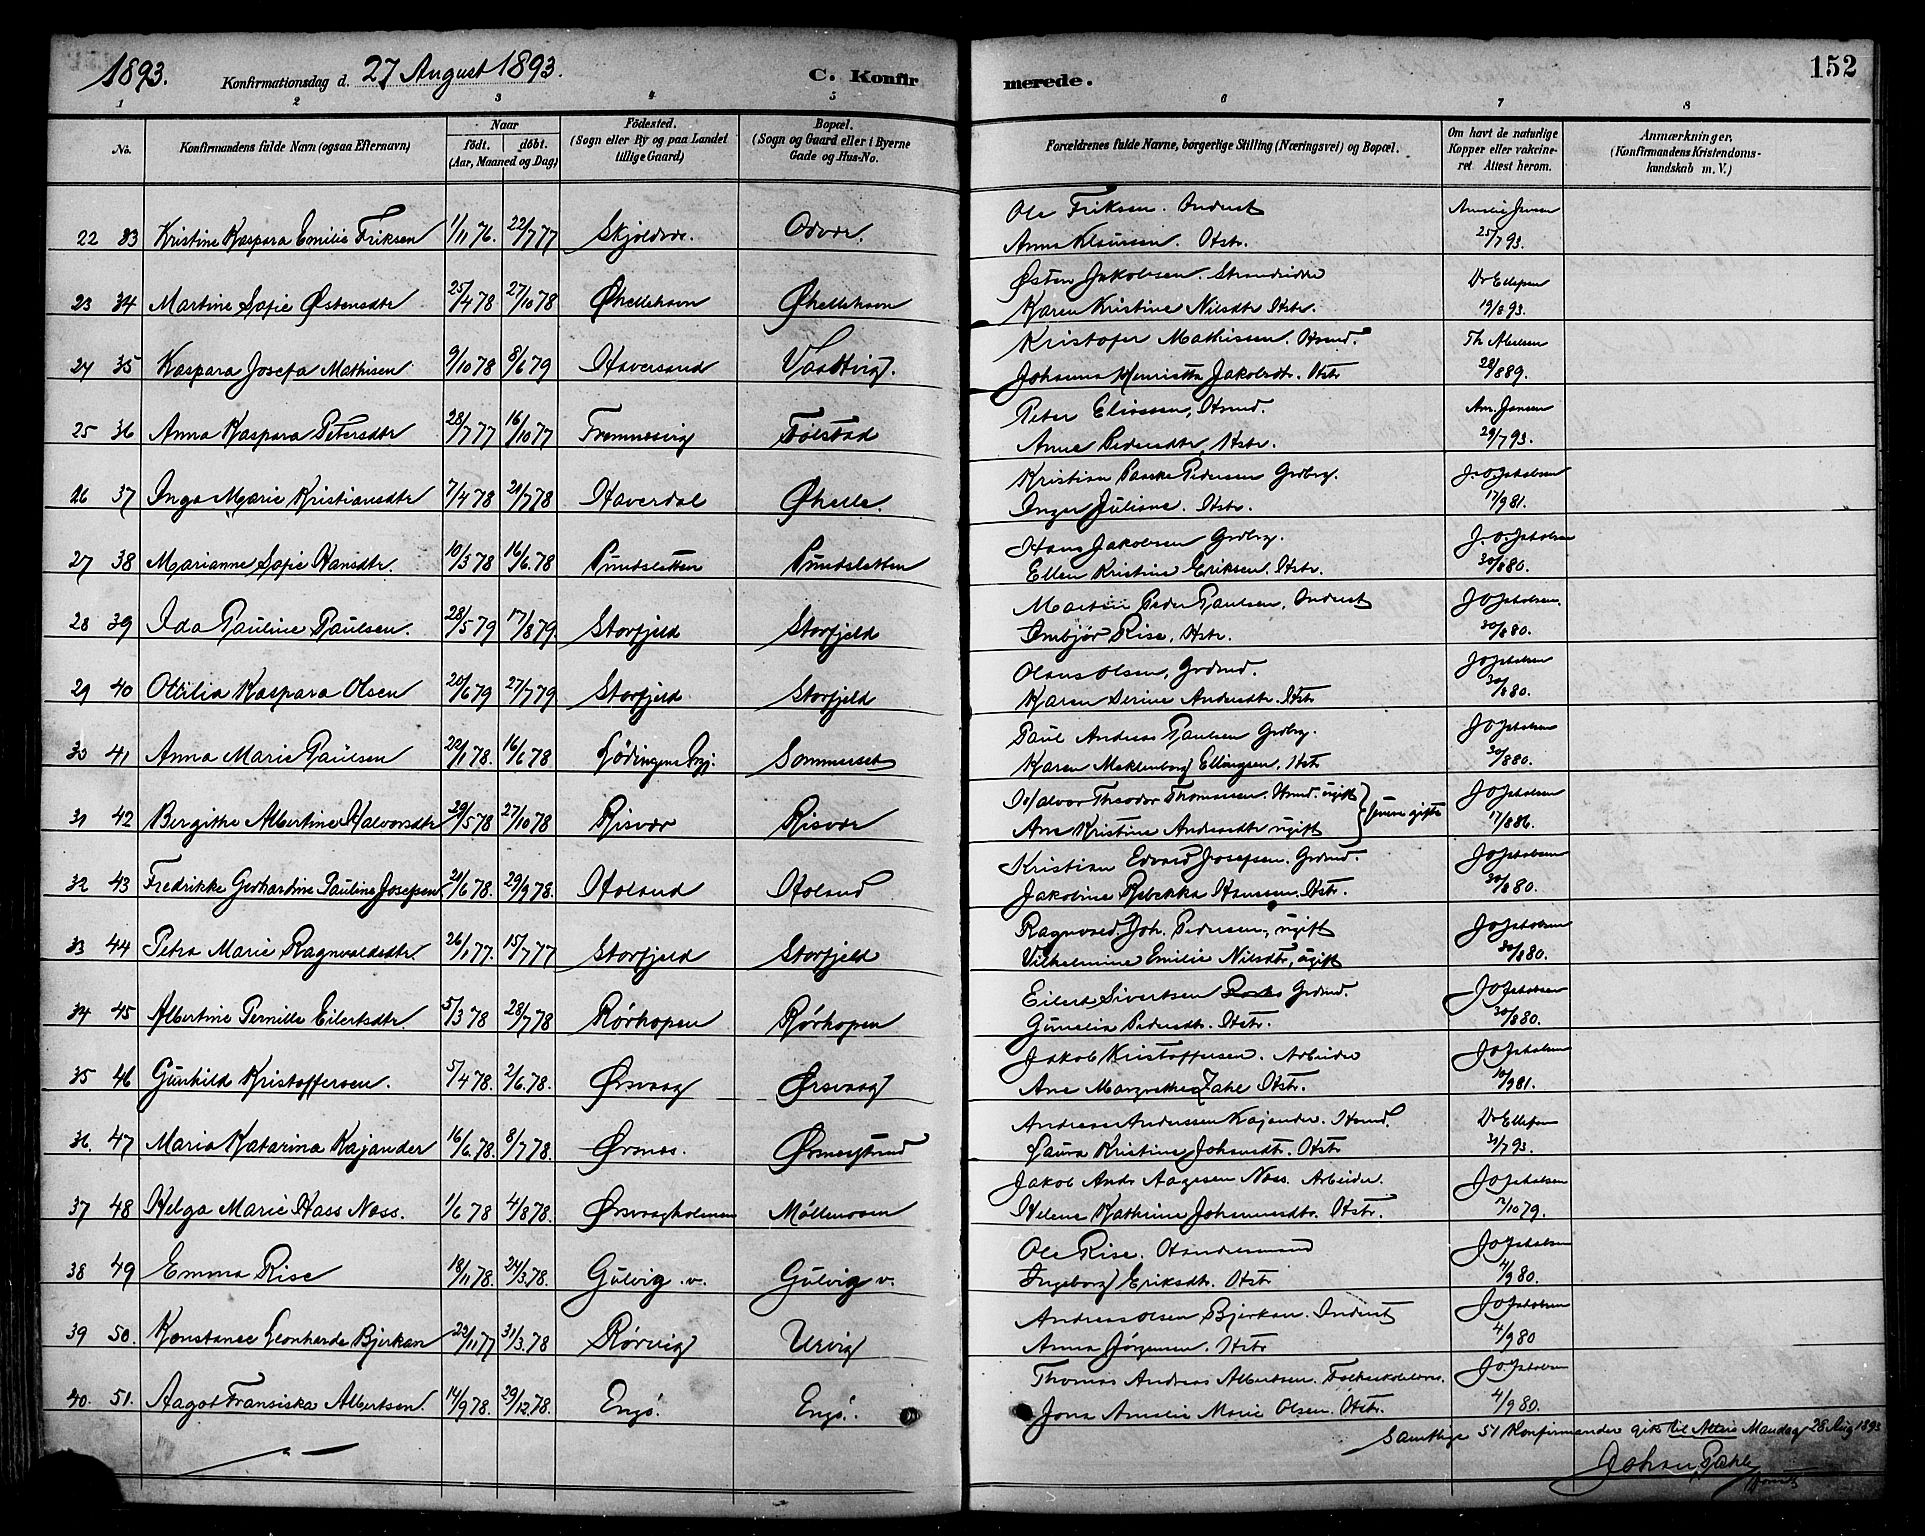 1893. Konfirmationsdag d. 27 August 1893. C. Konfirmerede. 152
1 2 3 4 5 6 7 8
No. Konfirmandens fulde Navn (ogsaa Efternavn) Naar födt. döbt. (Aar, Maaned og Dag) Födested. (Sogn eller By og paa Landet tillige Gaard) Bopæl. (Sogn og Gaard eller i Byerne Gade og Hus-No.
Forældrenes fulde Navne, borgerlige Stilling (Næringsvei) og Bopæl. Om havt de naturlige Kopper eller vakcineret. Attest herom. Anmærkninger. (Konfirmandens Kristendomskundskab m. V.)
22 33 Kristine Kaspara Emilie Friksen 1/11 76. 22/7 77 Odvær. Ole Friksen. Inderst
Anna Klausen. Hstr. 25/7 93.
23 34 Martine Sofie Østensdtr 25/4 78 27/10 78 Øhellehavn Øhellehavn Østen Jakobsen. Strandsidder Dr Ellefsen
Karen Kristine Nilsdtr Hstr. 19/8 93.
24 35 Kaspara Josefa Mathisen 9/10 78 8/6 79 Haversand Kristofer Mathissen. Hmd. Th Abelsen
Johanna Henrietta Jakobsdtr. Hstr 28/8 89.
25 36 Anna Kaspara Petersdtr 28/7 77 16/10 77 Fremnesvig Følstad Peter Eliassen, Hmd. Am. Jensen
Anne Pedersdtr, Hstr. 29/7 93.
26 37 Inga Marie Kristiansdtr 7/4 78 21/7 78 Haverdal Øhelle. Kristian Paaske Pedersen Grdbrg. J. O. Jakobsen
Inger Juliane. Hstr. 17/9 81.
27 38 Marianne Sofie Hansdtr. 10/3 78 16/6 78 Pundsletten Pundsletten Hans Jakobsen Grdbrg. J. O. Jakobsen
Ellen Kristine Eriksen. Hstr. 30/8 80.
28 39 Ida Pauline Paulsen. 28/5 79 17/8 79 Storfjeld Storfjeld Peder Paulsen, Inderst J O Jakobsen.
Ambjør Rise, Hstr. 30/8 80.
29 40 Otilia Kaspara Olsen 20/6 79 27/7 79 Storfjeld Storfjeld Olaus Olsen, Grdmd. J O Jakobsen
Karen Serine Andersdtr. Hstr 30/8 80.
30 41 Anna Marie Paulsen 22/1 78. 16/6 78 Lødingens Prgj. Sommerset Paul Andreas Paulsen Grdbrg. J O Jakobsen
Karen Meklenborg Ellingsen. Hstr 30/8 80.
31 42 Bergithe Albertine Halvorsdtr 29/5 78 27/10 78 Risvær Risvær Halvor Theodor Thomassen. Hmd. ugift J O Jakobsen
Ane Kristine Andersdtr ugift } senere gifte 17/8 86.
32 43 Fredrikke Gerhardine Pauline Josefsen 21/6 78. 29/9 78. Holand Holand Kristian Edvard Josefsen. Grdmd. J O Jakobsen
Jakobine Rebekka Hanssen. Hstr. 30/8 80.
33 44 Petra Marie Ragnvaldsdtr 26/1 77. 15/7 77 Storfjeld Storfjeld Joh. Pedersen, ugift J O Jakobsen
Vilhelmine Emilie Nilsdtr, ugift 30/8 80.
34 45 Albertine Pernille Eilertsdtr. 5/3 78 28/7 78 Rørhopen Rørhopen Eilert Sivertsen Grdmd. J O Jakobsen
Gunelia Pedersdtr. Hstr. 30/8 80.
35 46 Gunhild Kristoffersen. 5/4 78. 2/6 78. Ørsvaag Ørsvaag Jakob Kristoffersen. Arbeider J O Jakobsen
Ane Margrethe Zahl Hstr. 10/9 81.
36. 47 Maria Katarina Kajander 16/6 78. 8/7 78. Ørsnes. Andreas Anderssen Kajander. Hmd. Dr Ellefsen
Laura Kristine Johansdtr. Hstr 31/7 93.
37 48 Helga Marie Hass Næss. 1/6 78 4/8 78. Ørsvaagholmen Möllerosen Jakob Andr Aagesen Næss. Arbeider. J O Jakobsen
Helene Kathrine Johannesdtr. Hstr. 12/10 79.
38 49 Emma Rise 18/11 78. 24/3 78. Gulvig. v. Gulvig v. Ole Rise. Handelsmand J O Jakobsen
Ingeborg Eriksdtr. Hstr 4/9 80.
39 50. Konstance Leonharde Bjerkan 22/11 77 31/3 78 Rørvig Urvig Andreas Olsen Bjerkan. Inderst J O Jakobsen
Anna Jørgensen. Hstr 4/9 80
40. 51. Aagot Fransiska Albertsen. 14/9 78. 29/12 78. Engø. Engø. Thomas Andreas Albertsen. Folkeskolelærer. J O. Jakobsen
Jona Amalie Marie Olsen. Hstr. 4/9 80.
Samtlige 51 Konfirmander gik til Alters Mandag 28 Aug 1893
Johan